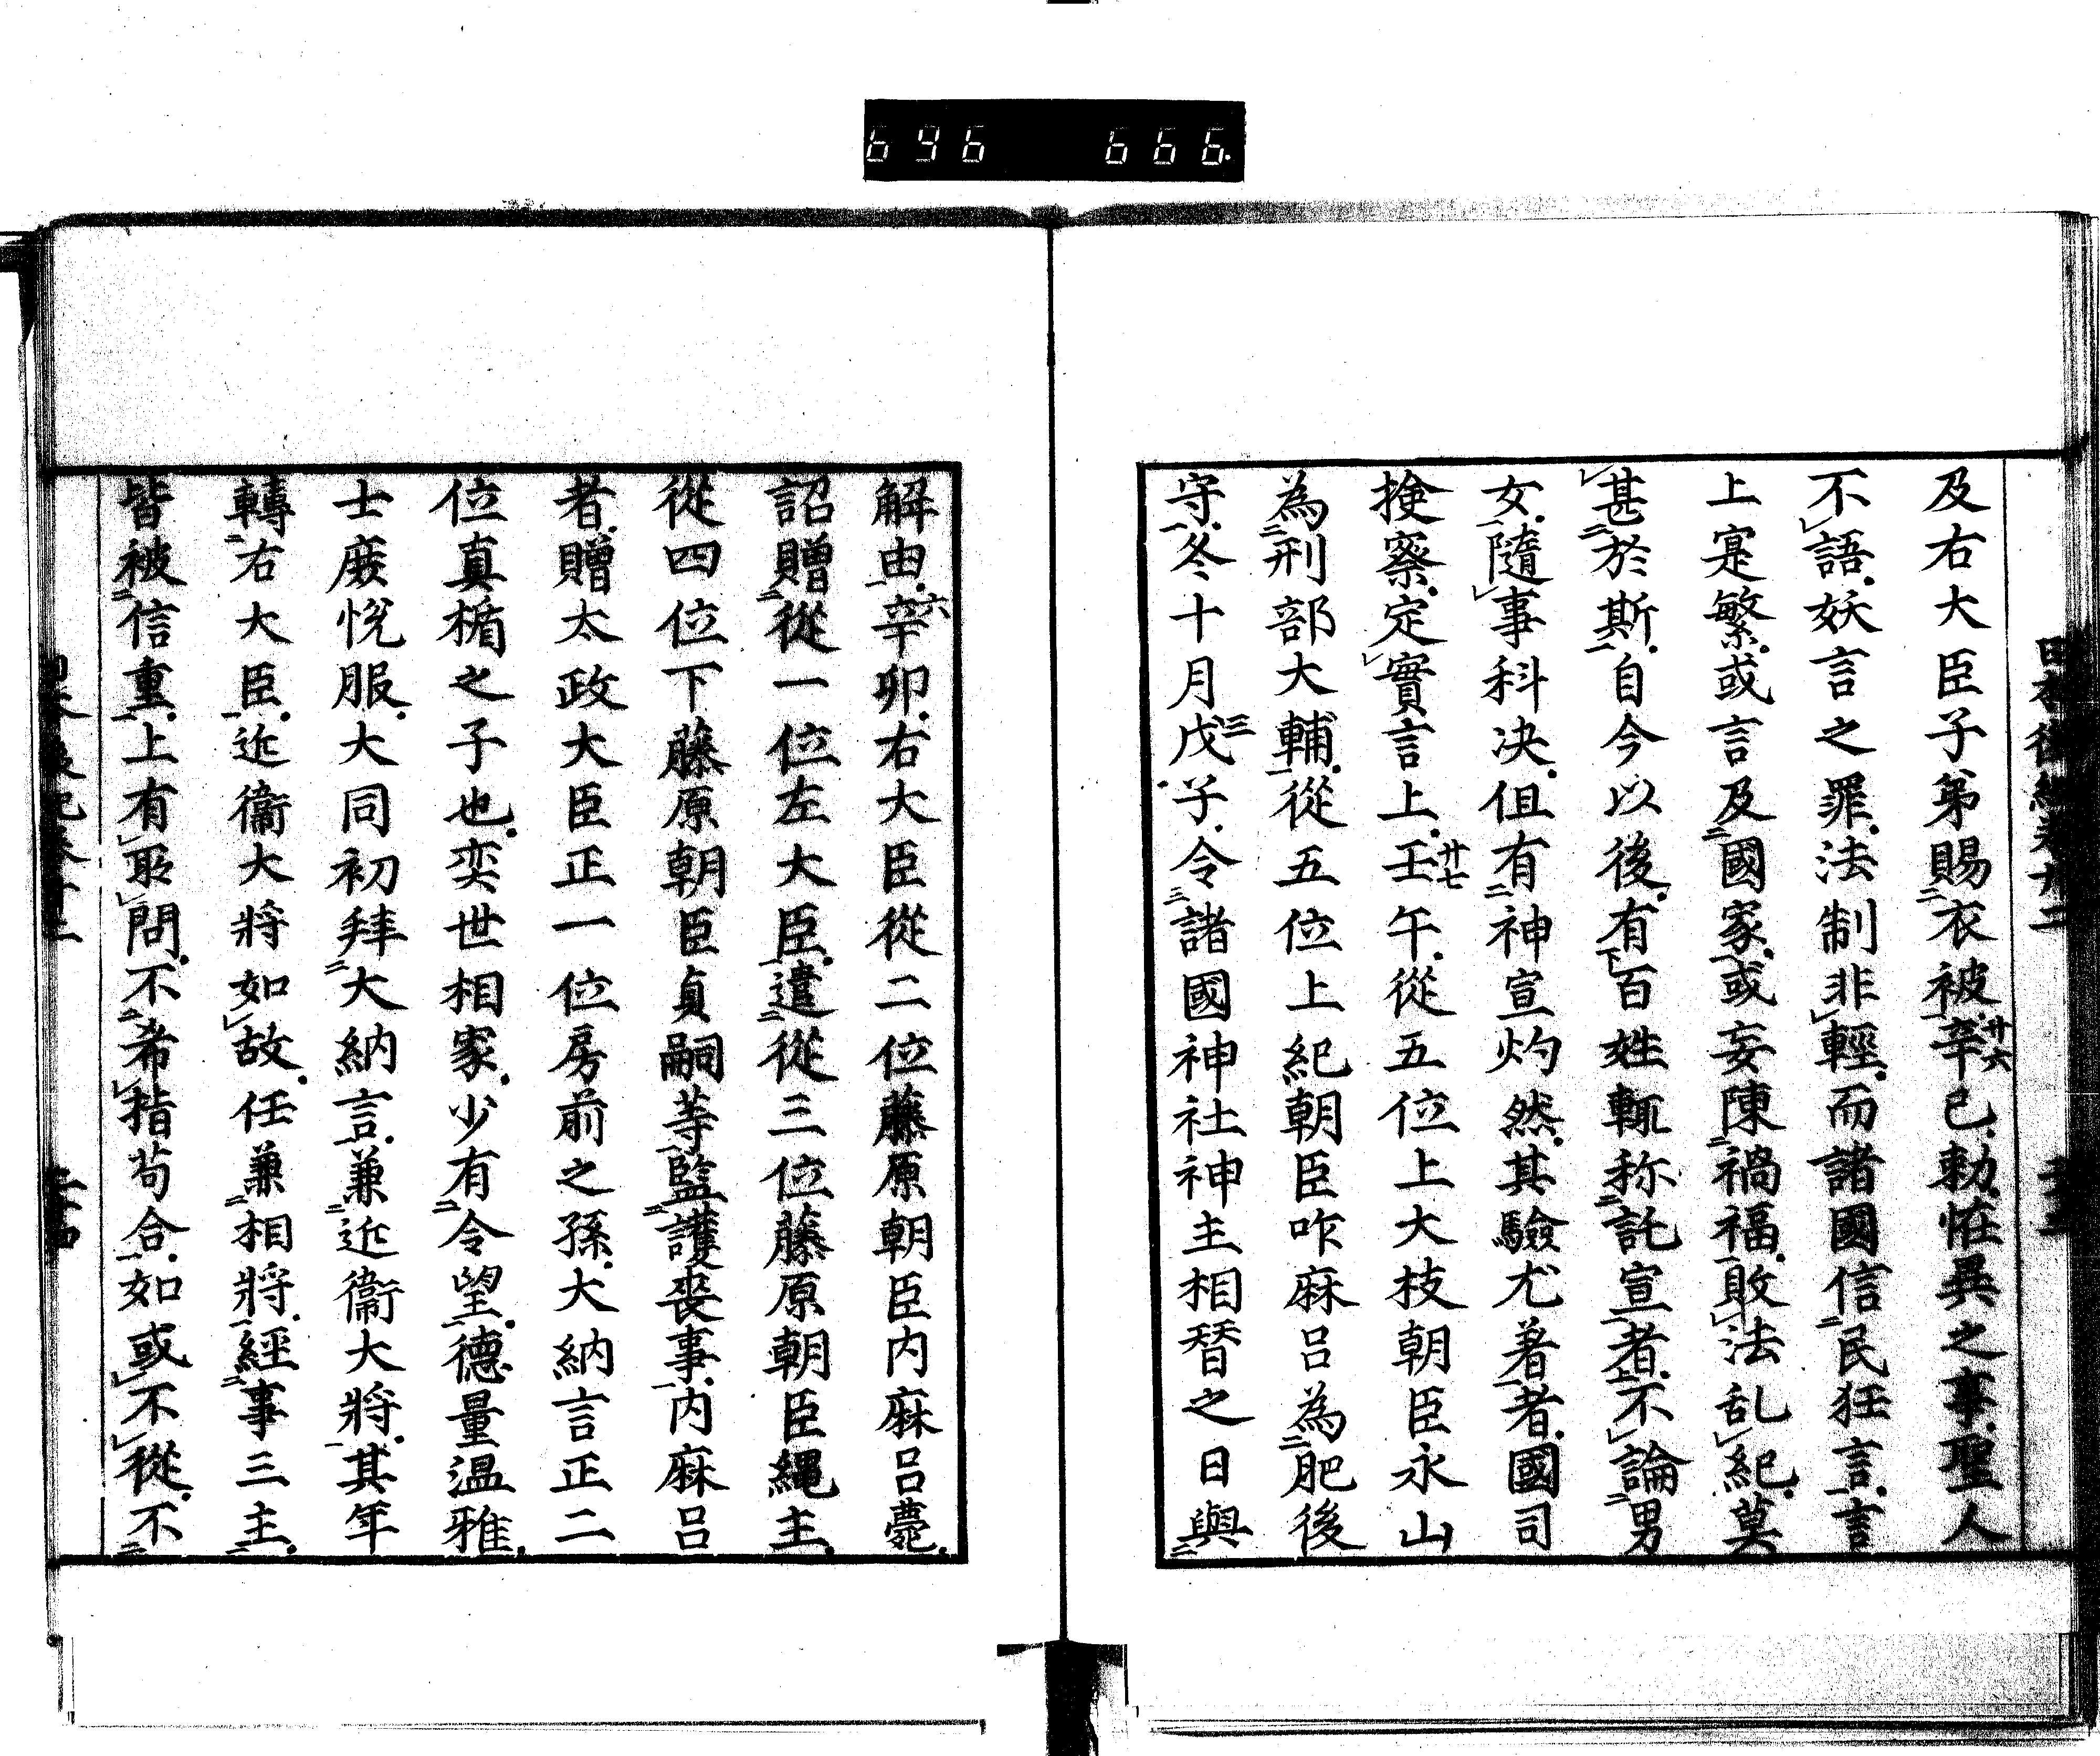 696 666
及右大臣子弟賜衣被辛巳勅恠異之事聖人
不語妖言之罪法制非輕而諸國信民狂言言
上寔繁或言及國家或妄陳禍福敗法乱紀莫
甚於斯自今以後有百姓輙称託宣者不論男
女隨事科决但有神宣灼然其驗尤著者國司
撿察定實言上壬午從五位上大枝朝臣永山
為刑部大輔從五位上紀朝臣咋麻呂為肥後
守冬十月戊子令諸國神社神主相替之日與
解由辛卯右大臣從二位藤原朝臣内麻呂薨
詔贈從一位左大臣遣從三位藤原朝臣縄主
從四位下藤原朝臣貞嗣等監護喪事内麻呂
者贈太政大臣正一位房前之孫大納言正二
位真楯之子也奕世相家少有令望德量温雅
士庻悦服大同初拜大納言兼近衞大將其年
轉右大臣近衞大將如故任兼相將經事三主
皆被信重上有所問不希指苟合如或不從不